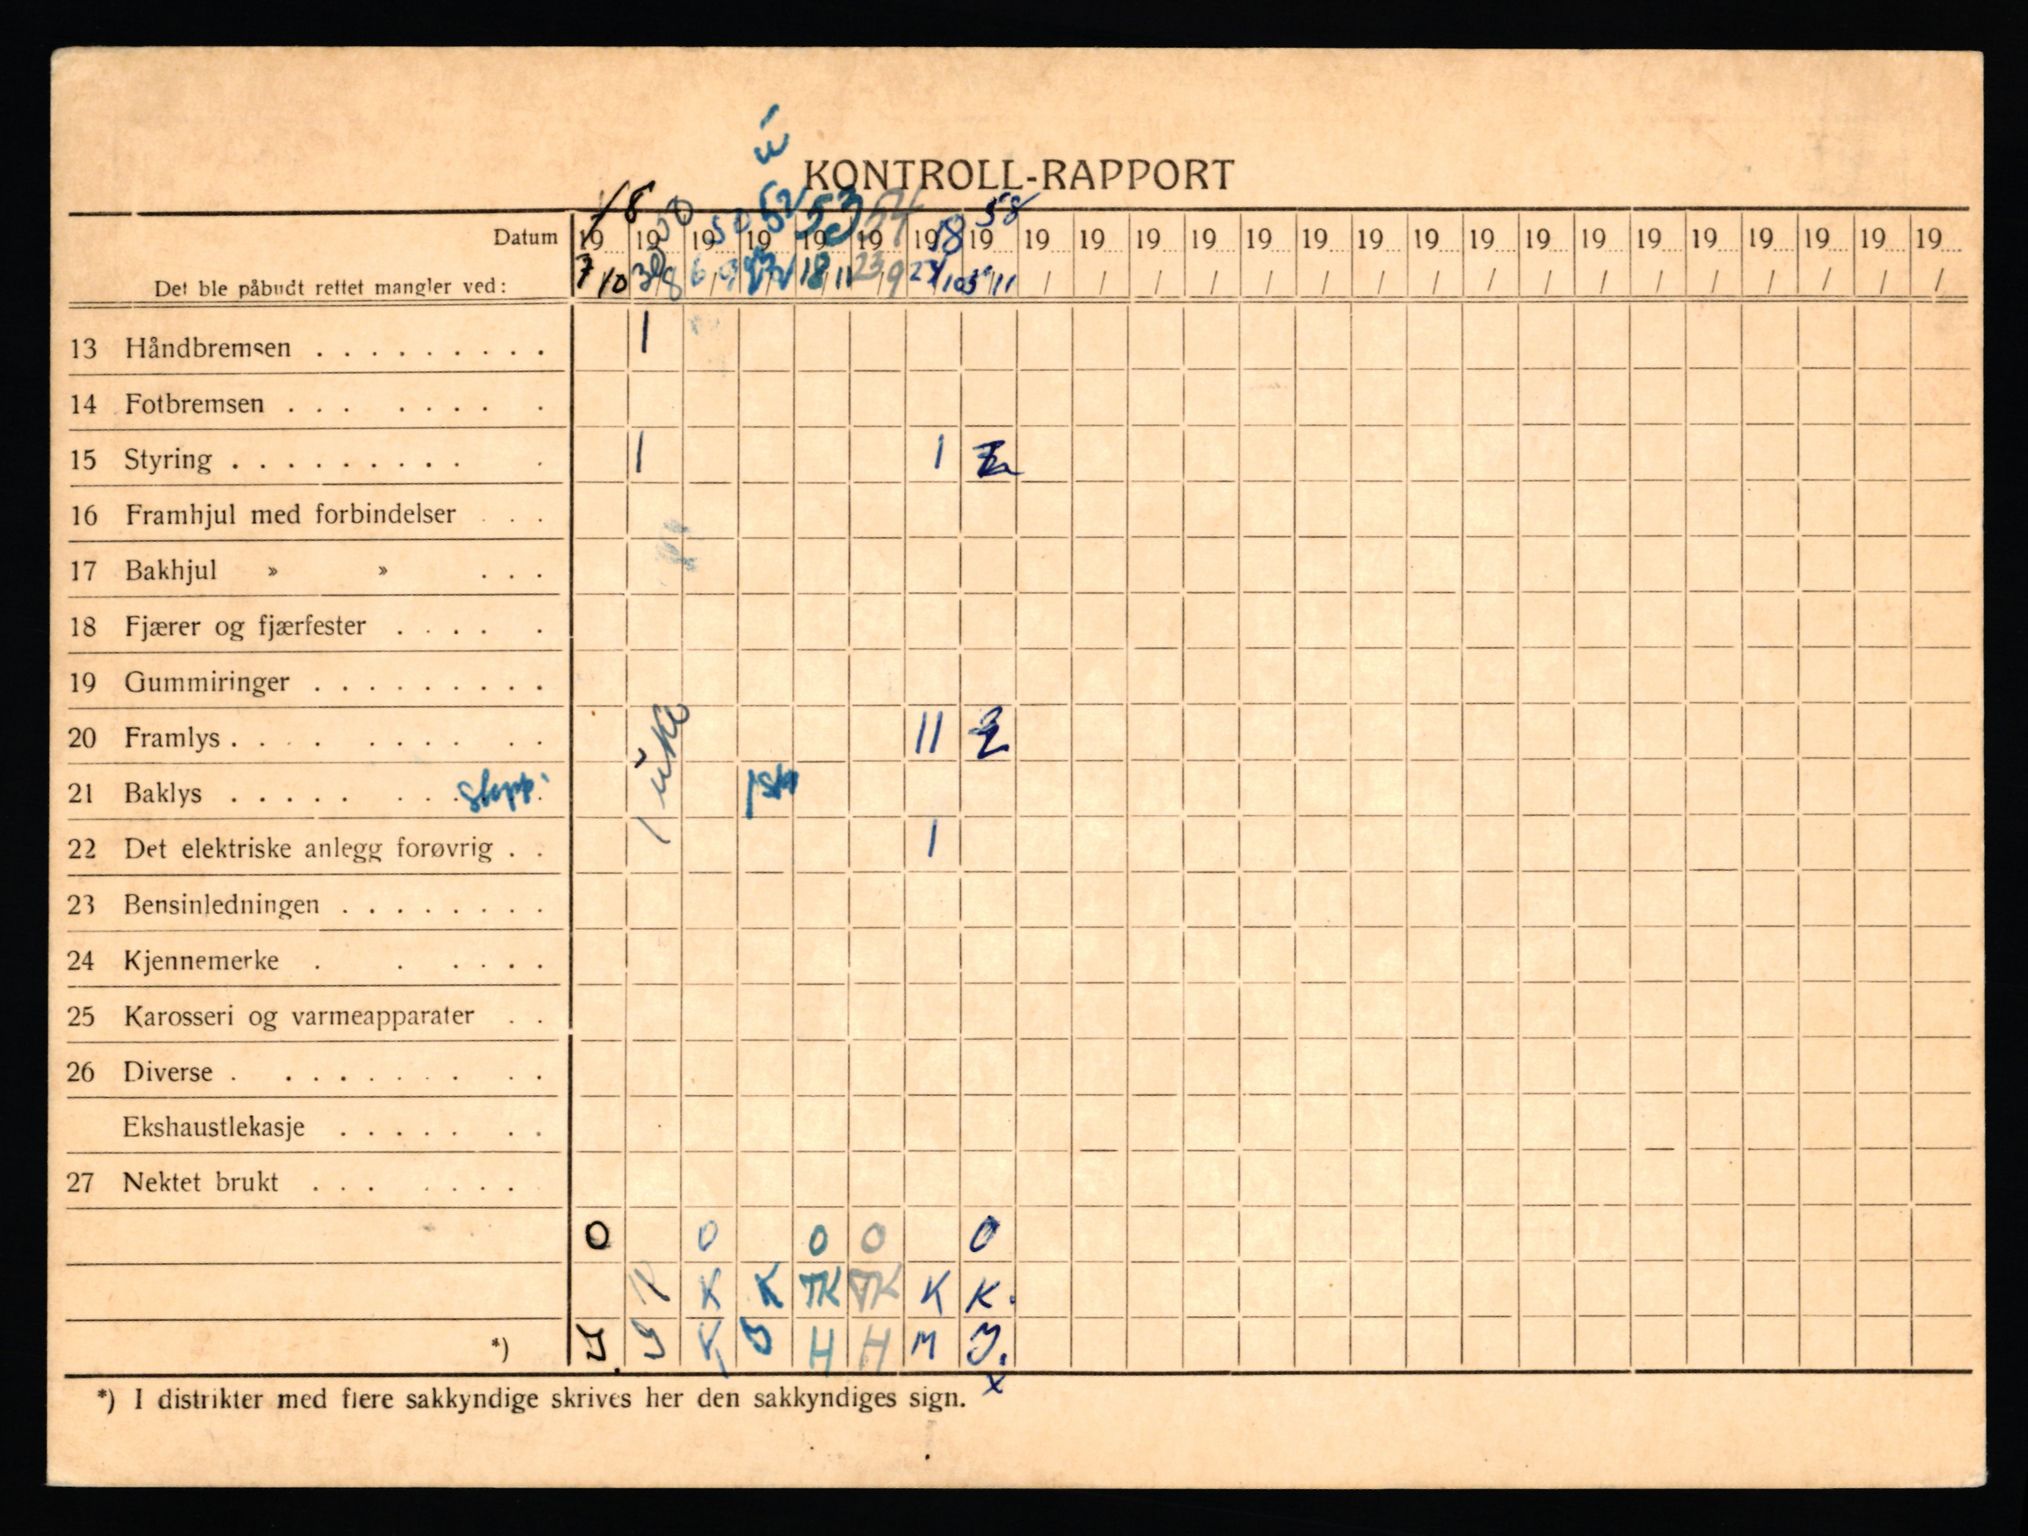 KONTROLL-RAPPORT
48 50 50 52 53 54 58 58
Datum 19 19 19 19 19 19 19 19 19 19 19 19 19 19 19 19 19 19 19 19 19 19 19 19 19
Det ble påbudt rettet mangler ved: 7/10 30/8 6/9 18/11 23/9 23/10 5/11 / / / / / / / / / / / / / / / / /
13 Håndbremsen . . . . . . . . . 1
14 Fotbremsen . . . . . . . .
15 Styring . . . . . . . . . . 1 1
16 Framhjul med forbindelser . . .
17 Bakhjul » » . . .
18 Fjærer og fjærfester . . . . .
19 Gummiringer . . . . . . . . .
20 Framlys . . . . . . . . . . II 2
21 Baklys . . . . . . . . stopp. 1 uke
22 Det elektriske anlegg forøvrig . . 1
23 Bensinledningen . . . . . . . .
24 Kjennemerke . . . . . .
25 Karosseri og varmeapparater . .
26 Diverse . . . . . . . . . .
Ekshaustlekasje . . . . . . .
27 Nektet brukt . . . . . . .
0 0 0 0 0
K K TK TK K K.
*) J. J K J H H M J.
x
*) I distrikter med flere sakkyndige skrives her den sakkyndiges sign.